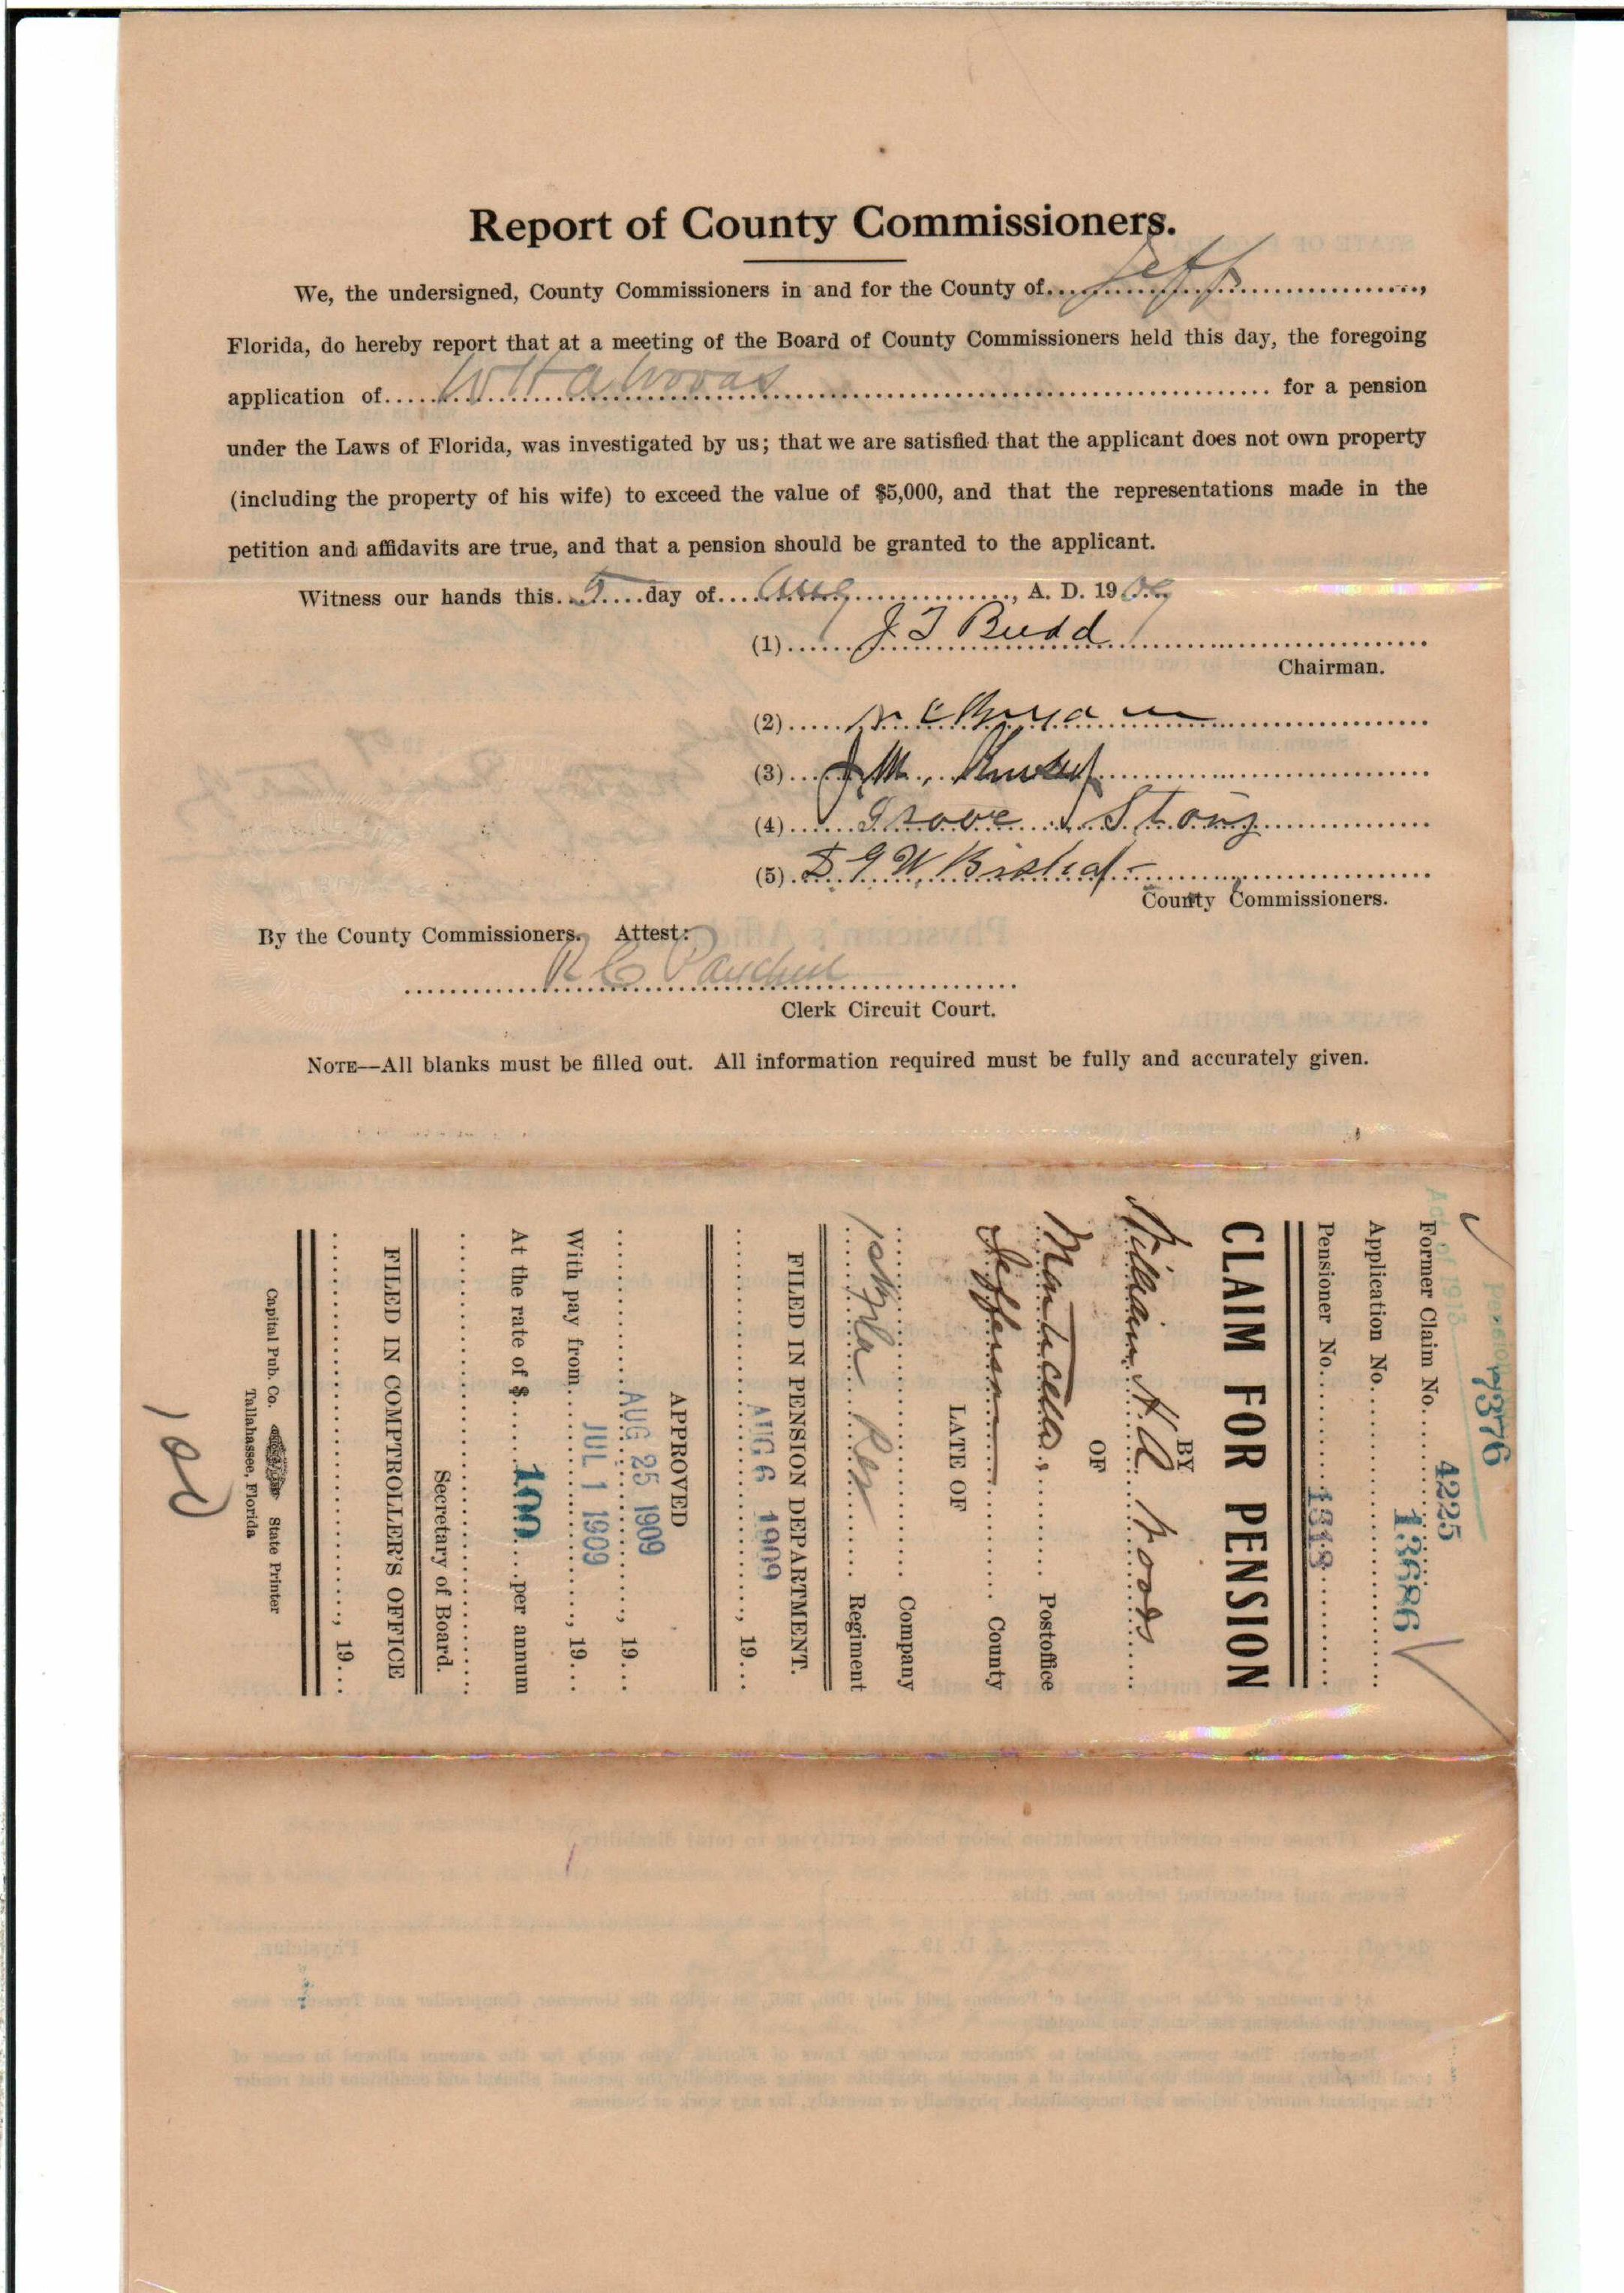 Report of County Commissioners.
We, the undersigned, County Commissioners in and for the County of Jeff,
Florida, do hereby report that at a meeting of the Board of County Commissioners held this day, the foregoing
application of W H A Woods for a pension
under the Laws of Florida, was investigated by us; that we are satisfied that the applicant does not own property
(including the property of his wife) to exceed the value of $5,000, and that the representations made in the
petition and affidavits are true, and that a pension should be granted to the applicant.
Witness our hands this 5 day of Aug, A. D. 1909
(1) J T Budd
Chairman.
(2)
(3) J. M.
(4) Groove
(5) G W
County Commissioners.
By the County Commissioners. Attest:
R C
Clerk Circuit Court.
NOTE—All blanks must be filled out. All information required must be fully and accurately given.
Act of 1913
7376
Former Claim No. 4225
Application No. 13686
Pensioner No. 1343
CLAIM FOR PENSION
BY
William H A Woods
OF
Monticello, Postoffice
Jefferson County
LATE OF
Company
1st Fla Res Regiment
FILED IN PENSION DEPARTMENT.
AUG 6 1909, 19
APPROVED
AUG 25 1909, 19
With pay from JUL 1 1909, 19
At the rate of $ 100 per annum
Secretary of Board.
FILED IN COMPTROLLER'S OFFICE
, 19
Capital Pub. Co. State Printer
Tallahassee, Florida